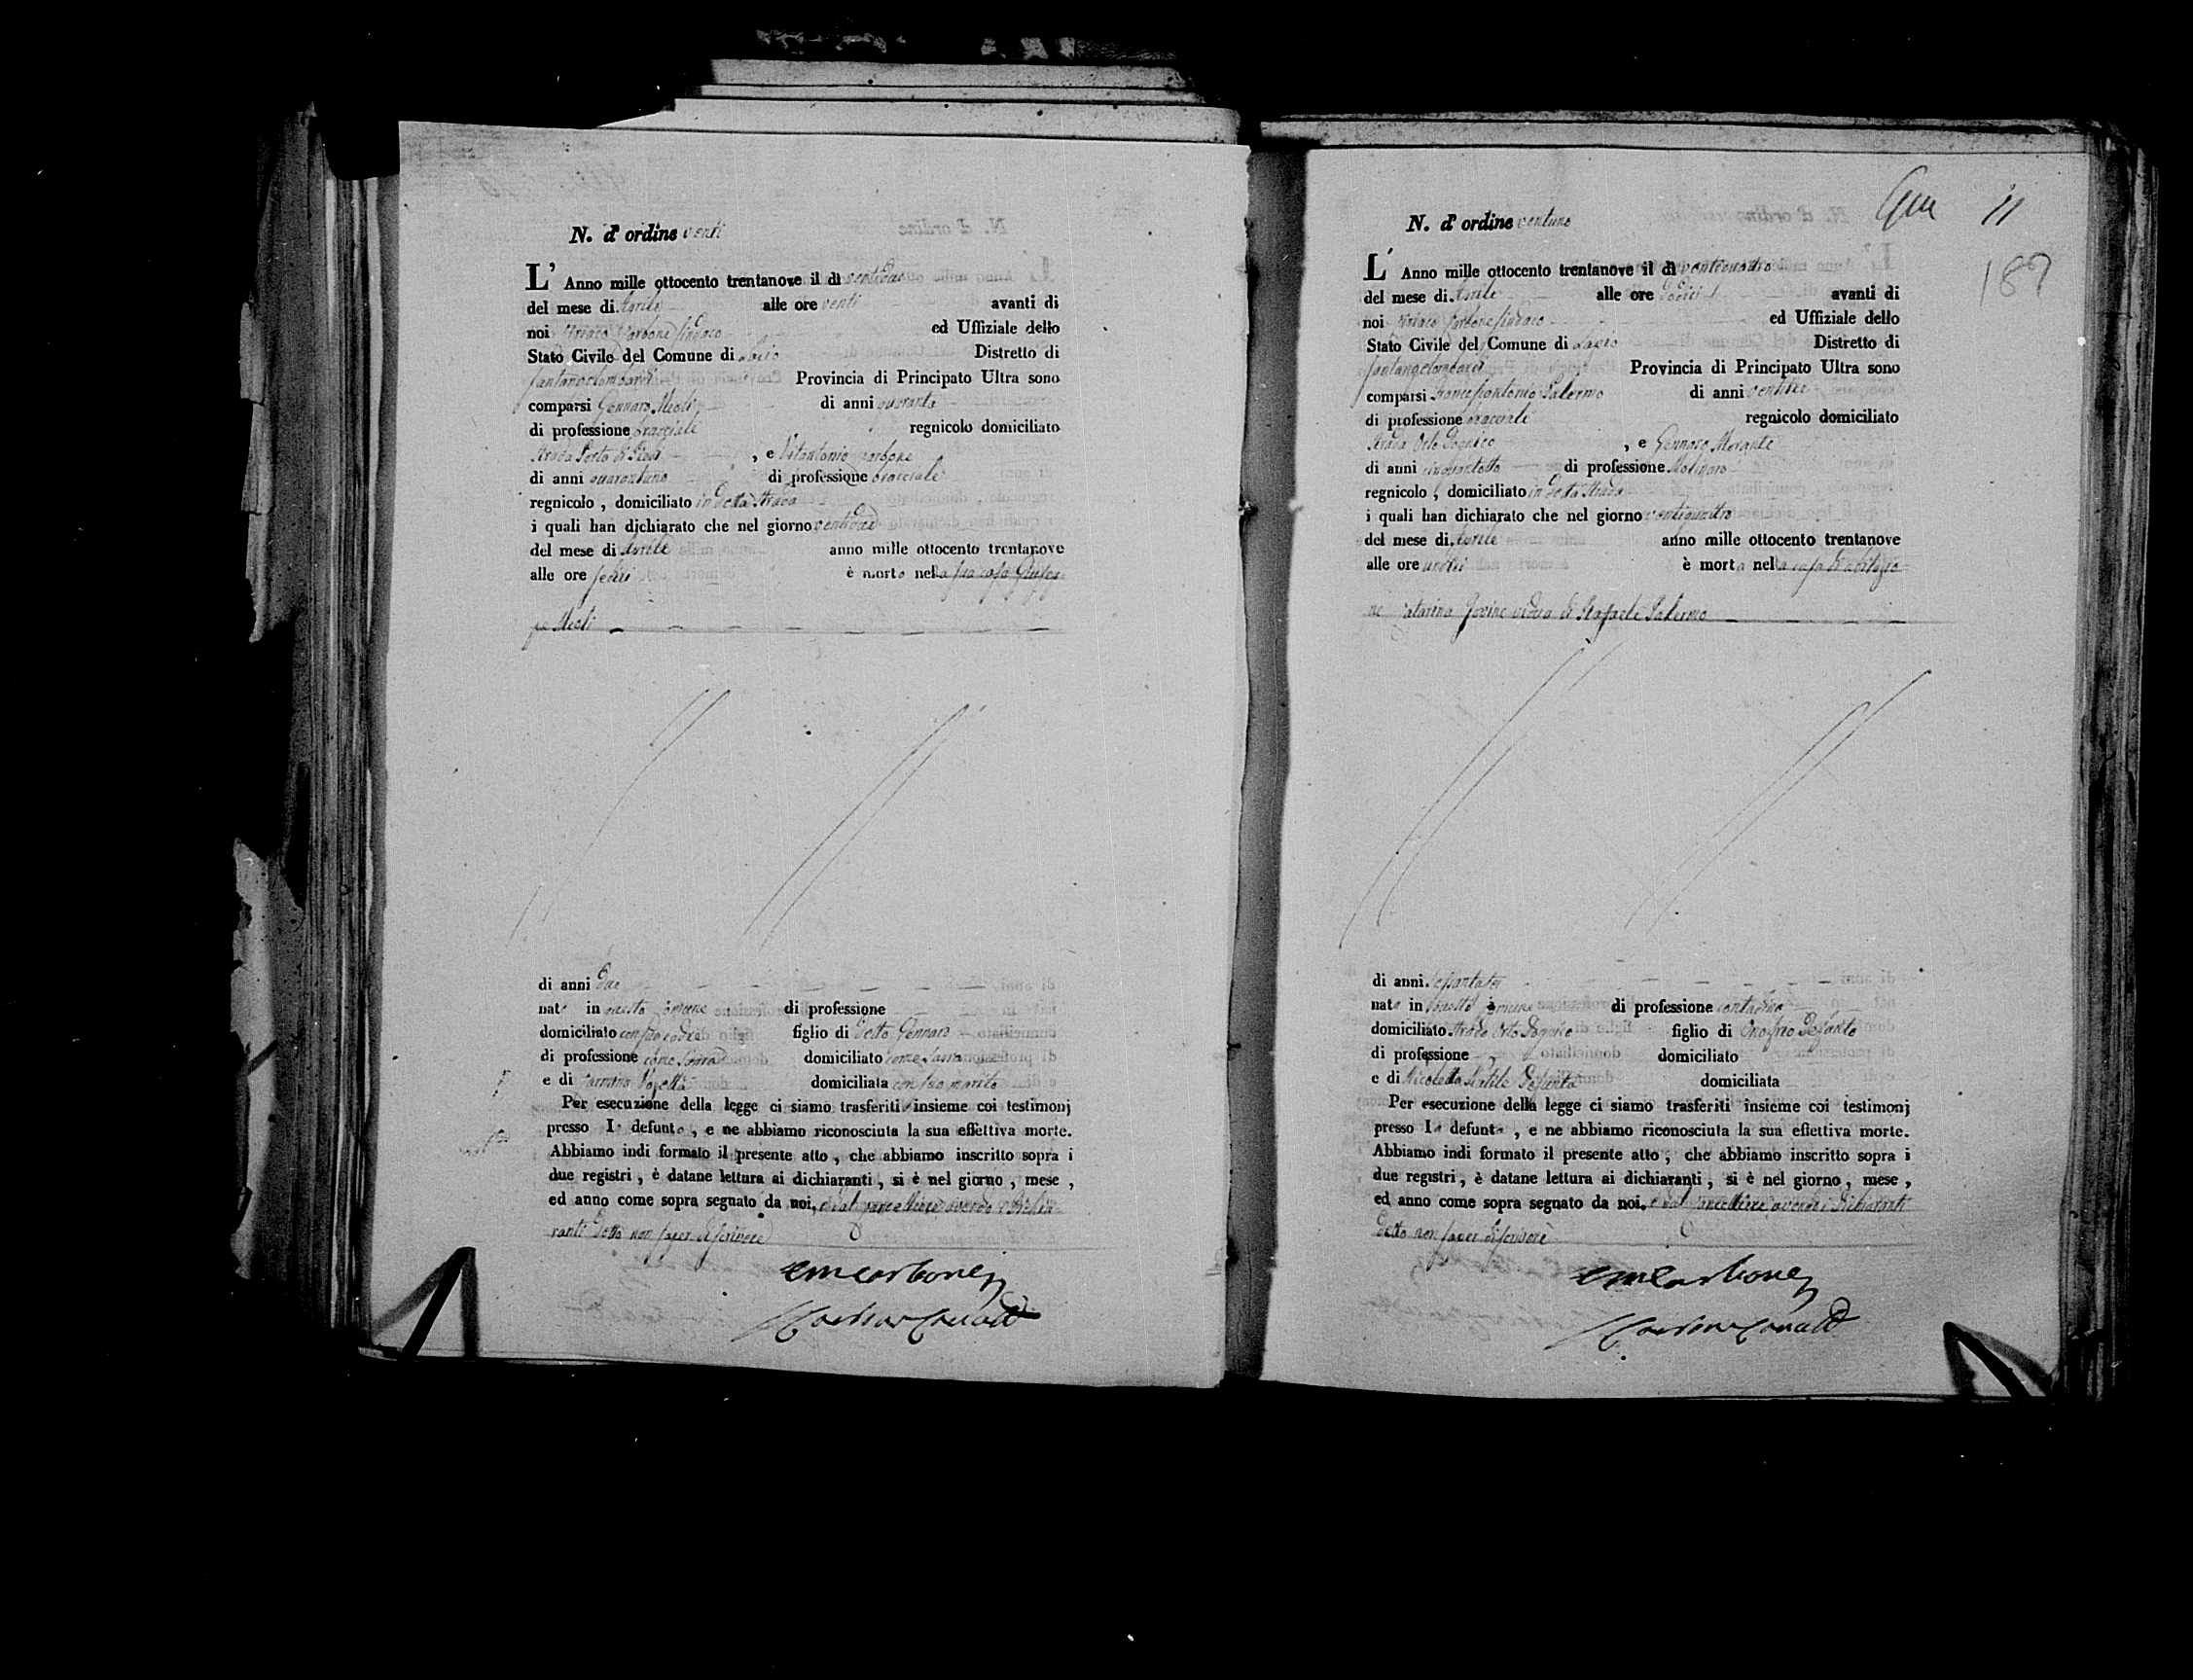 N. d' ordine venti
L' Anno mille ottocento trentanove il dì ventidue
del mese di Aprile alle ore venti avanti di
noi Carbone Sindaco ed Uffiziale dello
Stato Civile del Comune di Distretto di
Provincia di Principato Ultra sono
comparsi Gennaro Meoli di anni quaranta
di professione bracciale regnicolo domiciliato
Strada , e Vitantonio Carbone
di anni quarantuno di professione bracciale
regnicolo , domiciliato in detta Strada
i quali han dichiarato che nel giorno ventidue
del mese di Aprile anno mille ottocento trentanove
alle ore sedici è morto nella sua casa
Meoli
di anni due
nato in questo Comune di professione
domiciliato con suo padre figlio di detto Gennaro
di professione come sopra domiciliato come sopra
e di Carmina domiciliata con suo marito
Per esecuzione della legge ci siamo trasferiti insieme coi testimonj
presso l defunt , e ne abbiamo riconosciuta la sua effettiva morte.
Abbiamo indi formato il presente atto , che abbiamo inscritto sopra i
due registri , è datane lettura ai dichiaranti , si è nel giorno , mese ,
ed anno come sopra segnato da noi, e dal Cancelliere avendo i dichia
ranti detto non saper di scrivere
Carbone
N. d' ordine ventuno
11
187
L' Anno mille ottocento trentanove il dì ventiquattro
del mese di Aprile alle ore dodici avanti di
noi Carbone Sindaco ed Uffiziale dello
Stato Civile del Comune di Distretto di
Provincia di Principato Ultra sono
comparsi Francescantonio Salermo di anni ventisei
di professione bracciale regnicolo domiciliato
Strada Orto , e Gennaro Morante
di anni cinquantotto di professione Molinaro
regnicolo , domiciliato in detta Strada
i quali han dichiarato che nel giorno ventiquattro
del mese di Aprile anno mille ottocento trentanove
alle ore undici è morta nella casa di abitazio
ne Catarina Iovine vedova di Rafaele Salermo
di anni sessantasei
nata in questo Comune di professione contadina
domiciliato Strada Orto figlio di Onofrio Defunto
di professione domiciliato
e di Nicoletta Defunta domiciliata
Per esecuzione della legge ci siamo trasferiti insieme coi testimonj
presso l defunt , e ne abbiamo riconosciuta la sua effettiva morte.
Abbiamo indi formato il presente atto , che abbiamo inscritto sopra i
due registri , è datane lettura ai dichiaranti , si è nel giorno , mese ,
ed anno come sopra segnato da noi, e dal Cancelliere avendo i Dichiaranti
detto non saper di scrivere
Carbone